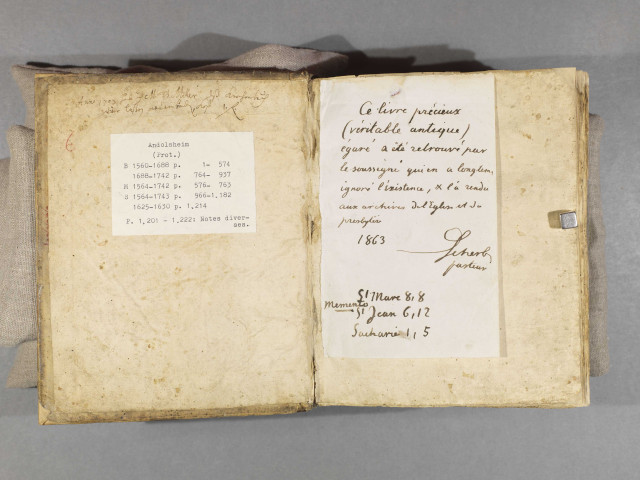 Andolsheim
(Prot.)
B 1560-1688 p. 1- 574
1688-1742 p. 764- 937
M 1564-1742 p. 576- 763
S 1564-1743 p. 966-1,182
1625-1630 p. 1,214
F. 1,201 - 1,222: Notes diver-
ses.
Ce livre précieux
(véritable antique)
egaré a été retrouvé par
le soussigné qui en a longtems
ignoré l'existence, & l'a rendu
aux archives de l'Eglise et du
presbytère
1863
Scherb,
pasteur
St Marc 8,8
Memento St Jean 6,12
Sacharie 1,5